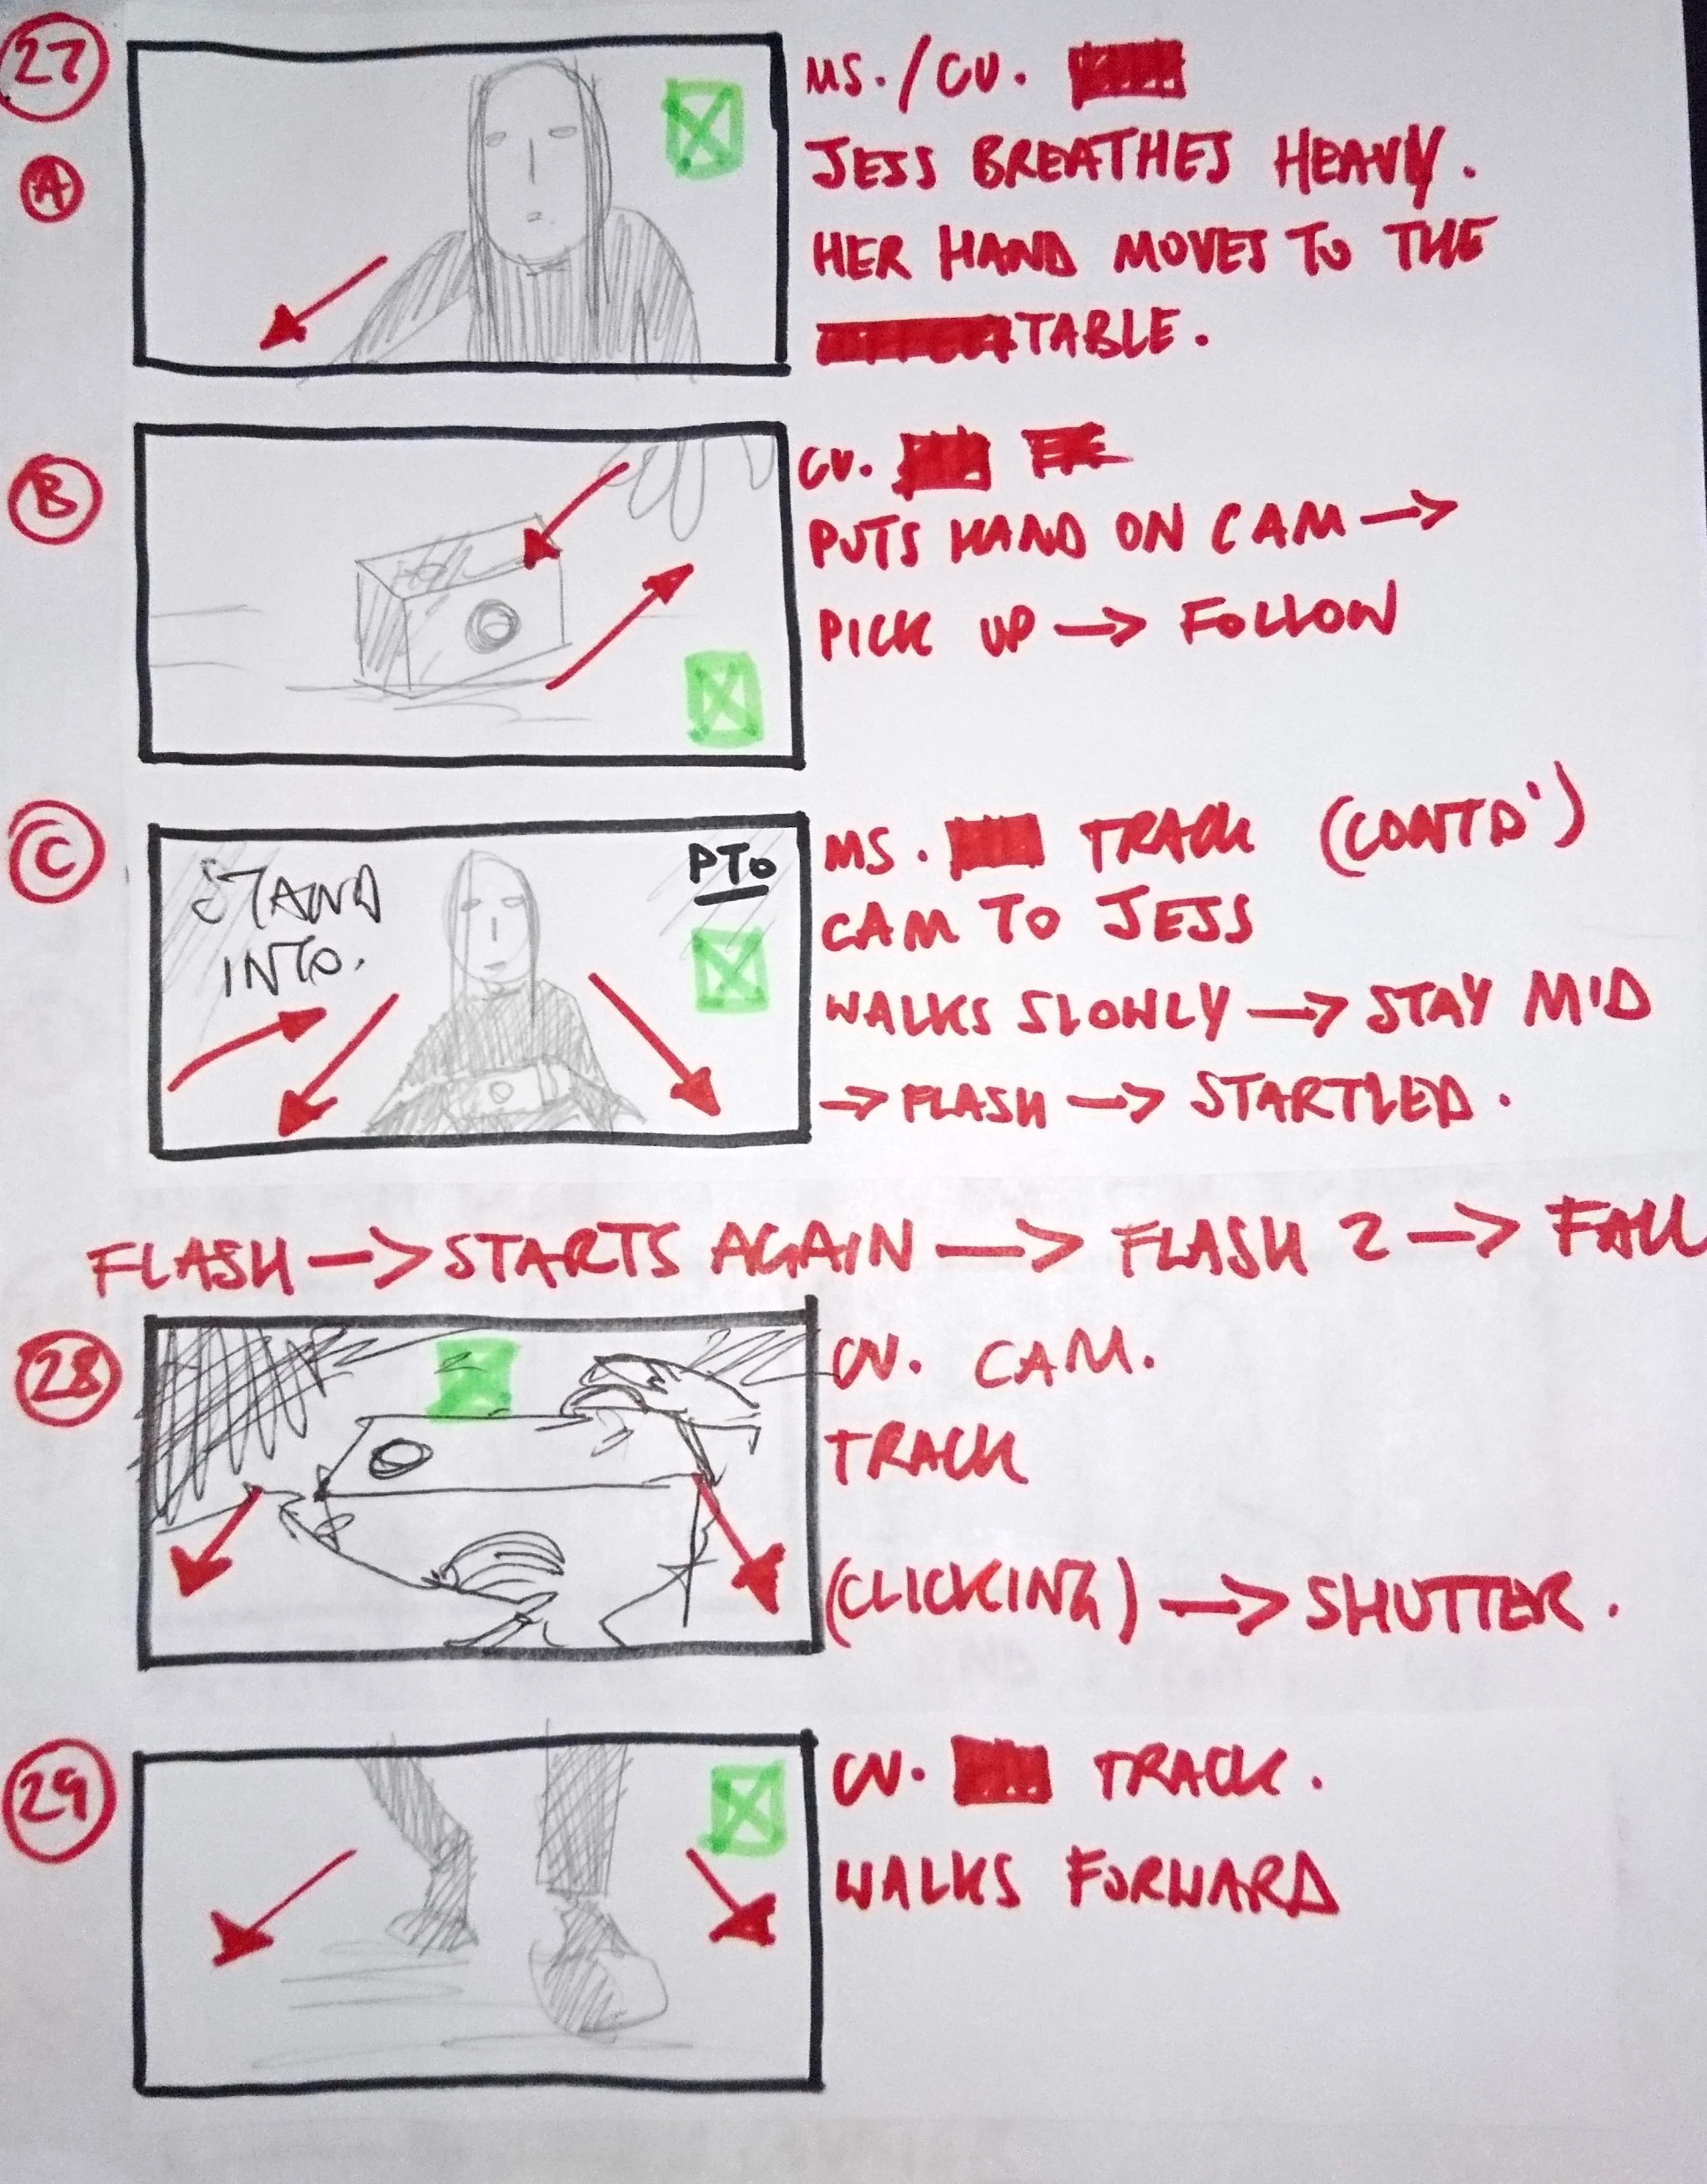 27
MS./CU.
JESS BREATHES HEAVY.
A
HER HAND MOVES TO THE
TABLE.
B
CU.
PUTS HAND ON CAM →
PICK UP → FOLLOW
C
STAND
INTO.
PTO
MS. TRACK (CONTD')
CAM TO JESS
WALKS SLOWLY → STAY MID
→ FLASH → STARTLED.
FLASH → STARTS AGAIN → FLASH 2 → FALL
28
CU. CAM.
TRACK
(CLICKING) → SHUTTER.
29
CU. TRACK.
WALKS FORWARD